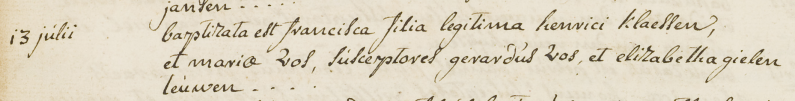 jansen . . . . .
13 julii baptizata est francisca filia legitima henrici klaessen,
et mariæ vos, susceptores gerardus vos, et elizabetha gielen
leuwen . . . .